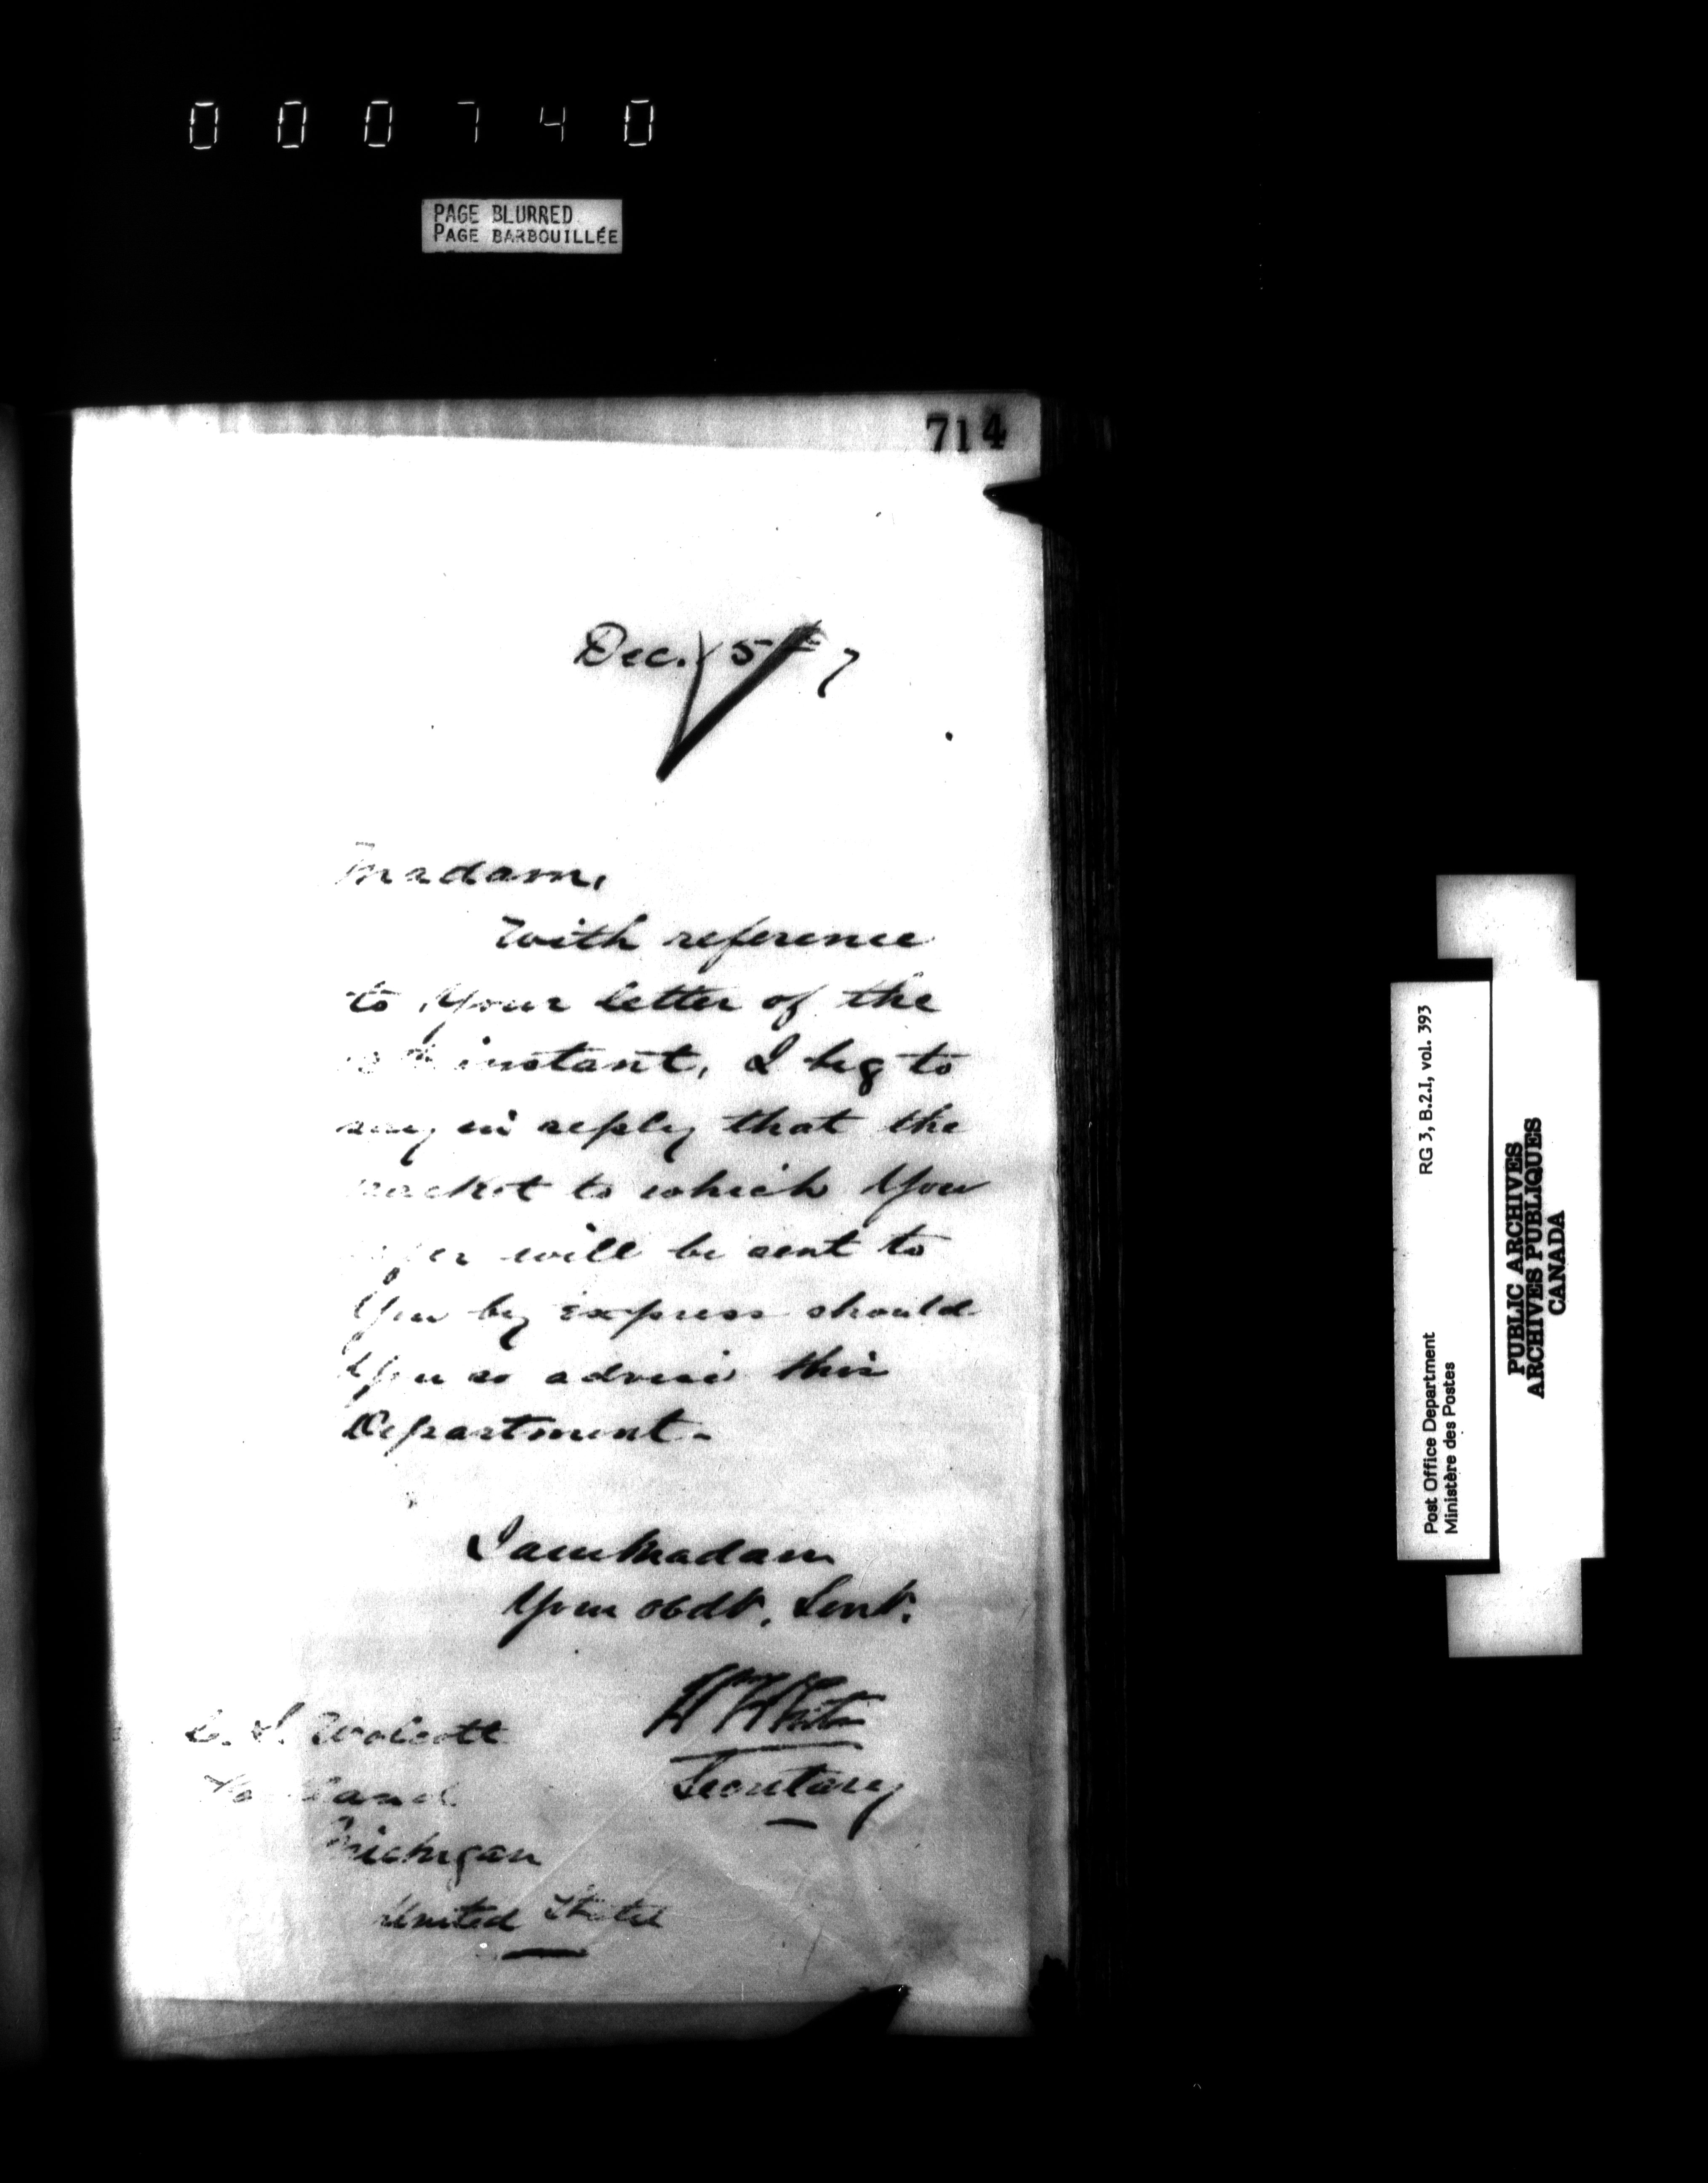 000740
PAGE BLURRED
PAGE BARBOUILLÉE
714
Dec. 15th 7
Madam,
With reference
to your letter of the
instant, I beg to
say in reply that the
packet to which you
refer will be sent to
you by express should
you so advise this
Department.
I am Madam
Your obdt. Servt.
Secretary
Wolcott
Michigan
United States
RG 3, B.2.I, vol. 393
Post Office Department
Ministère des Postes
PUBLIC ARCHIVES
ARCHIVES PUBLIQUES
CANADA